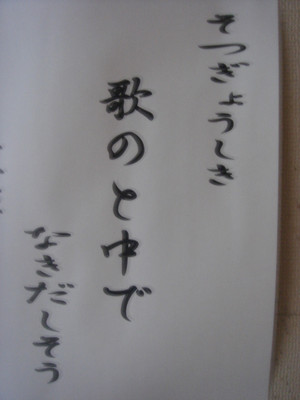 そつぎょうしき
歌のと中で
なきだしそう